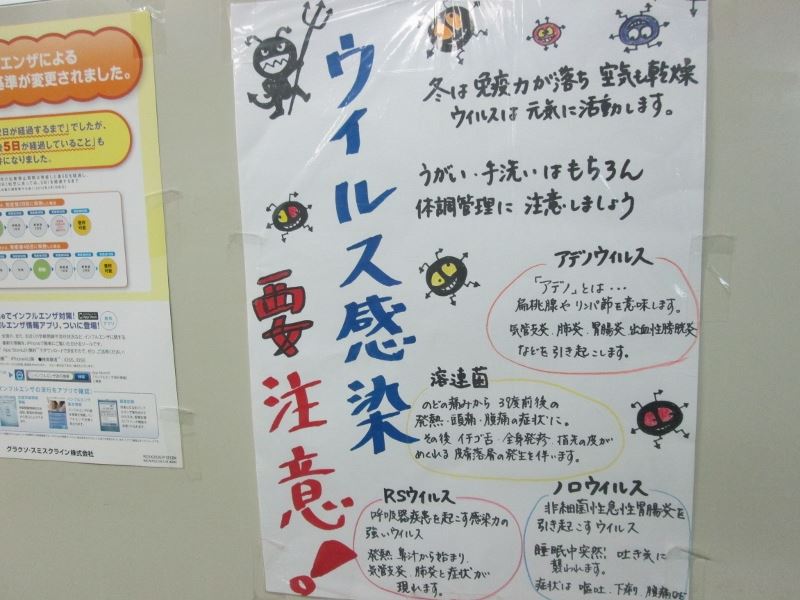 ウイルス感染
要注意！
冬は免疫力が落ち 空気も乾燥
ウィルスは 元気に活動します。
うがい・手洗いはもちろん
体調管理に 注意しましょう
アデノウィルス
「アデノ」とは…
扁桃腺や リンパ節を意味します。
気管支炎・肺炎・胃腸炎・出血性膀胱炎
などを引き起こします。
溶連菌
のどの痛みから 39度前後の
発熱・頭痛・腹痛の症状に。
その後 イチゴ舌・全身発疹・指先の皮が
めくれる 皮膚落屑の発生を伴います。
RSウィルス
呼吸器疾患を起こす感染力の
強いウィルス
発熱・鼻汁から始まり、
気管支炎・肺炎と症状が
現れます。
ノロウィルス
非細菌性急性胃腸炎を
引き起こすウィルス
睡眠中突然！吐き気に
襲われます。
症状は 嘔吐、下痢、腹痛など
エンザによる
基準が変更されました。
2日が経過するまで」でしたが、
後5日が経過していること」も
件になりました。
eでインフルエンザ対策!
ルエンザ情報アプリ、ついに登場!
インフルエンザの流行をアプリで確認
グラクソ・スミスクライン株式会社